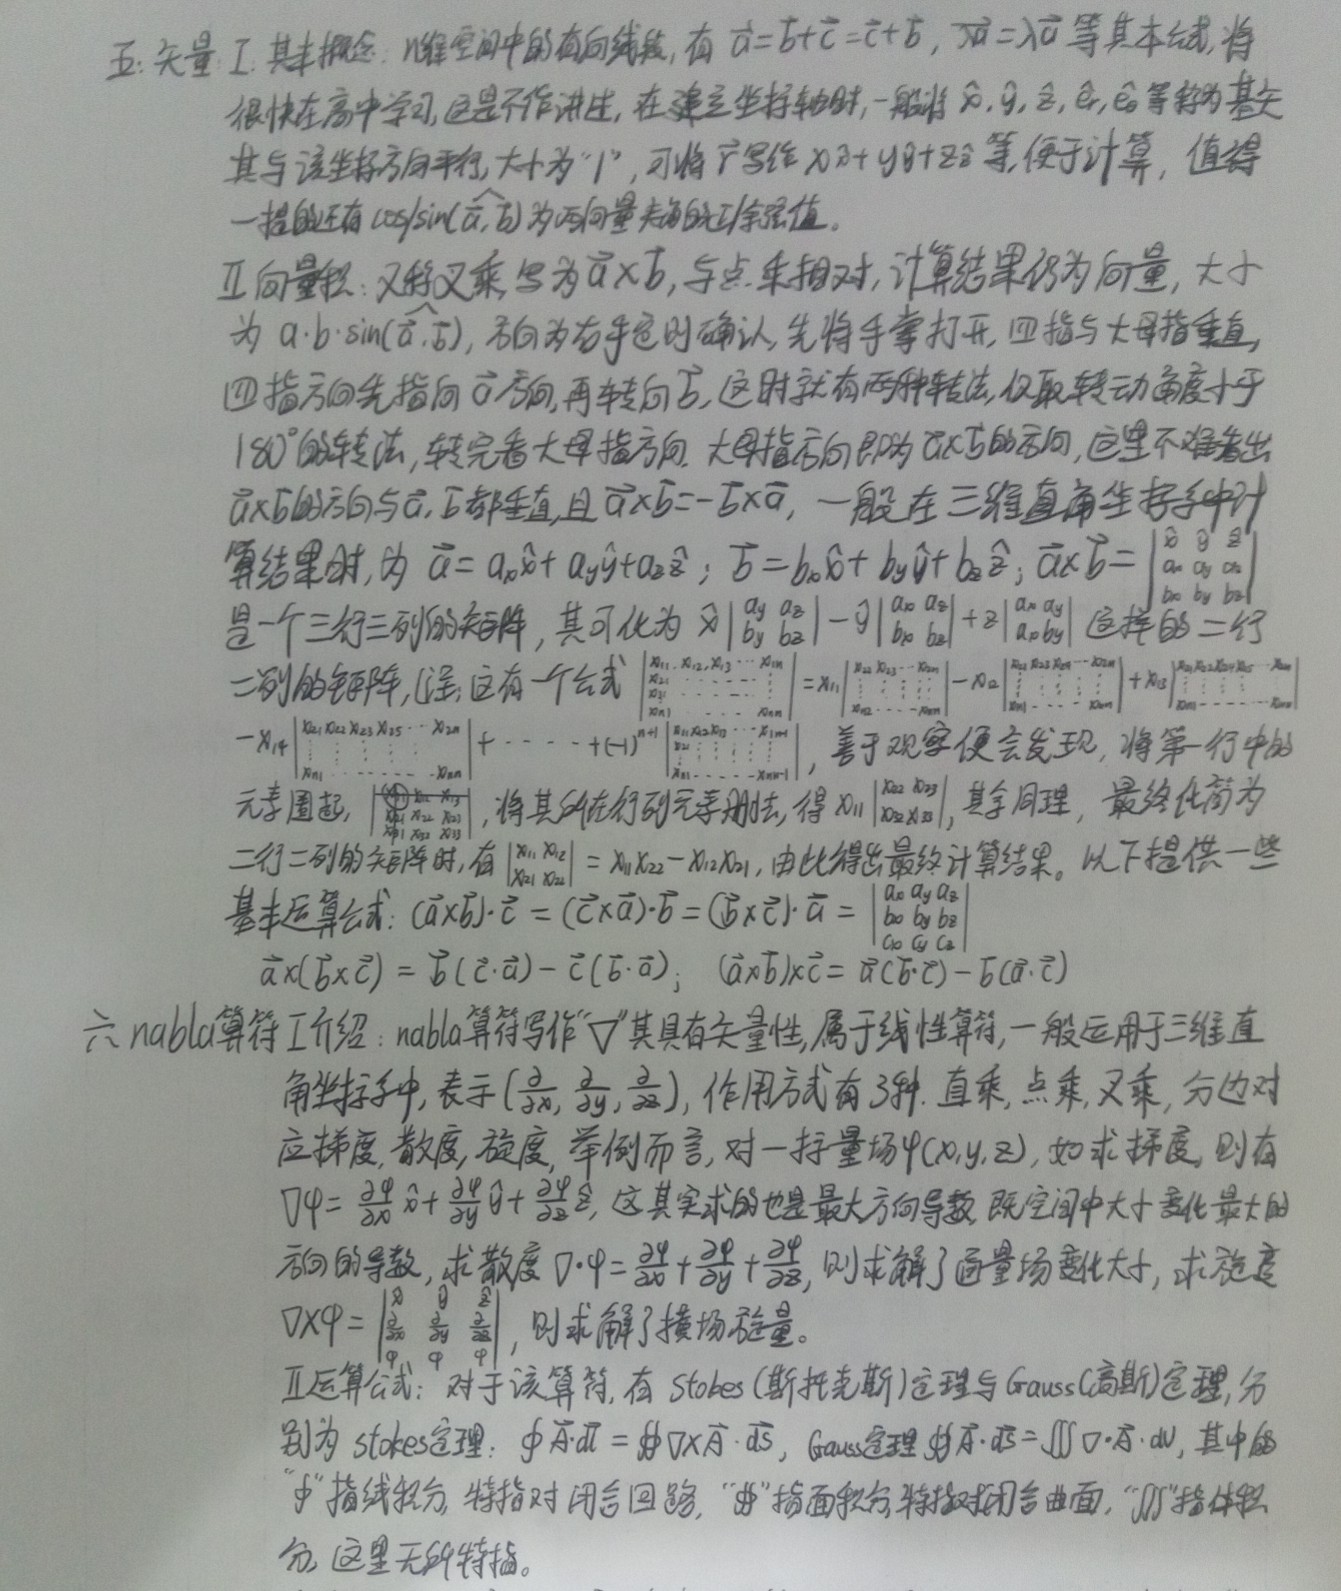 五: 矢量 I. 基本概念: n维空间中的有向线段, 有 a⃗=b⃗+c⃗=c⃗+b⃗, λa⃗=λa⃗ 等基本公式, 将
很快在高中学习, 这里不作讲述, 在建立坐标轴时, 一般将 x̂, ŷ, ẑ, êr, êθ 等称为基矢
其与该坐标方向平行, 大小为"1", 可将 r⃗ 写作 xx̂+yŷ+zẑ 等, 便于计算, 值得
一提的还有 cos/sin(a⃗,b⃗) 为两向量夹角的正/余弦值。
II 向量积: 又称叉乘, 写为 a⃗×b⃗, 与点乘相对, 计算结果仍为向量, 大小
为 a·b·sin(a⃗,b⃗), 方向为右手定则确认, 先将手掌打开, 四指与大母指垂直,
四指方向先指向 a⃗ 方向, 再转向 b⃗, 这时就有两种转法, 仅取转动角度小于
180°的转法, 转完看大母指方向. 大母指方向即为 a⃗×b⃗ 的方向, 这里不难看出
a⃗×b⃗ 的方向与 a⃗, b⃗ 都垂直, 且 a⃗×b⃗=-b⃗×a⃗, 一般在三维直角坐标系中计
算结果时, 为 a⃗=axx̂+ayŷ+azẑ; b⃗=bxx̂+byŷ+bzẑ; a⃗×b⃗=|x̂ ŷ ẑ; ax ay az; bx by bz|
是一个三行三列的矩阵, 其可化为 x̂|ay az; by bz|-ŷ|ax az; bx bz|+z|ax ay; ax by| 这样的二行
二列的矩阵, (注: 这有一个公式 |x11, x12, x13 ··· x1n; x21 ···; x31 ···; xn1 ··· xnn|=x11|x22 x23 ··· x2n; xn2 ··· xnn|-x12|x21 x23 x24 ··· x2n; xn1 ··· xnn|+x13|x21 x22 x24 x25 ··· x2n; xn1 ··· xnn|
-x14|x21 x22 x23 x25 ··· x2n; xn1 ··· xnn|+ ······ +(-1)ⁿ⁺¹|x11 x12 x13 ··· x1n-1; x21 ···; xn1 ··· xnn-1|, 善于观察便会发现, 将第一行中的
元素圈起, |x11 x12 x13; x21 x22 x23; x31 x32 x33|, 将其所在行列元素删去, 得 x11|x22 x23; x32 x33|, 其余同理, 最终化简为
二行二列的矩阵时, 有|x11 x12; x21 x22|=x11x22-x12x21, 由此得出最终计算结果。以下提供一些
基本运算公式: (a⃗×b⃗)·c⃗=(c⃗×a⃗)·b⃗=(b⃗×c⃗)·a⃗=|ax ay az; bx by bz; cx cy cz|
a⃗×(b⃗×c⃗)=b⃗(c⃗·a⃗)-c⃗(b⃗·a⃗); (a⃗×b⃗)×c⃗=a⃗(b⃗·c⃗)-b⃗(a⃗·c⃗)
六 nabla算符 I 介绍: nabla算符写作"▽"其具有矢量性, 属于线性算符, 一般运用于三维直
角坐标系中, 表示(∂/∂x, ∂/∂y, ∂/∂z), 作用方式有3种. 直乘, 点乘, 叉乘, 分边对
应梯度, 散度, 旋度, 举例而言, 对一标量场φ(x,y,z), 如求梯度, 则有
▽φ=∂φ/∂x x̂+∂φ/∂y ŷ+∂φ/∂z ẑ, 这其实求的也是最大方向导数, 既空间中大小变化最大的
方向的导数, 求散度 ▽·φ=∂φ/∂x+∂φ/∂y+∂φ/∂z, 则求解了通量场变化大小, 求旋度
▽×φ=|x̂ ŷ ẑ; ∂/∂x ∂/∂y ∂/∂z; φ φ φ|, 则求解了横场旋量。
II 运算公式: 对于该算符, 有 Stokes (斯托克斯) 定理与 Gauss (高斯) 定理, 分
别为 Stokes定理: ∮A⃗·dl⃗=∯▽×A⃗·dS⃗, Gauss定理 ∯A⃗·dS⃗=∭▽·A⃗·dV, 其中的
"∮"指线积分, 特指对闭合回路, "∯"指面积分, 特指对闭合曲面, "∭"指体积
分, 这里无所特指。